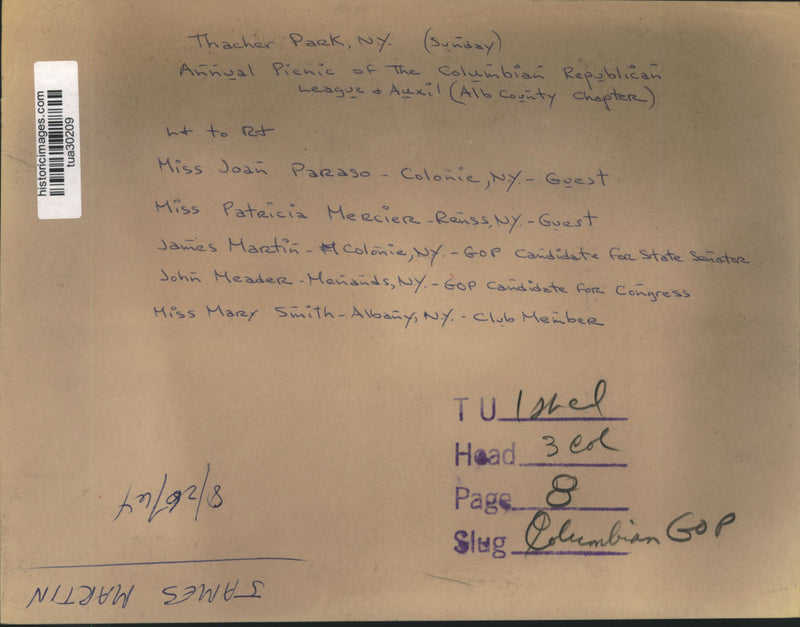 Thacher Park, N.Y. (Sunday)
Annual Picnic of The Columbian Republican
League & Auxil (Alb County Chapter)
Lt to Rt
Miss Joan Paraso - Colonie, N.Y. - Guest
Miss Patricia Mercier - Renss, N.Y. - Guest
James Martin - Colonie, N.Y. - GOP Candidate for State Senator
John Meader - Menands, N.Y. - GOP Candidate for Congress
Miss Mary Smith - Albany, N.Y. - Club Member
historicimages.com
tua30209
TU 1st ed
Head 3 col
Page 8
Slug Columbian GOP
8/26/64
JAMES MARTIN